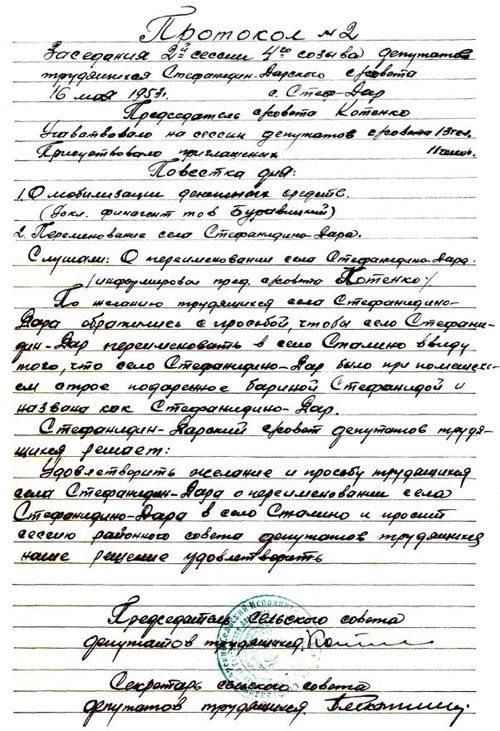 Протокол №2
Заседания 2й сессии 4го созыва депутатов
трудящихся Стефанидин-Дарского с/совета
16 мая 1953г. с. Стеф-Дар
Председатель с/совета Котенко
Учавствовало на сессии депутатов с/совета 13чел.
Присуствовало приглашенных 11челов.
Повестка дня:
1. О мобилизации денежных средств.
(Докл. финагент тов Буравицкий)
2. Переменование села Стефанидино-Дара.
Слушали: О переименовании села Стефанидино-Дара.
/информировал пред. с/совета Котенко/
По желанию трудящихся села Стефанидино-
Дара обратились с просьбой, чтобы село Стефани-
дин-Дар переименовать в село Сталино ввиду
того, что село Стефанидино-Дар было при помещес-
ем строе подаренное бариной Стефанидой и
названа как Стефанидино-Дар.
Стефанидин-Дарский с/совет депутатов трудя-
щихся решает:
Удовлетворить желание и просьбу трудящихся
села Стефанидин-Дара о переименовании села
Стефанидино-Дара в село Сталино и просит
сессию районного совета депутатов трудящихся
наше решение удовлетворить
Председатель сельского совета
депутатов трудящихся.
Секретарь сельского совета
депутатов трудящихся.